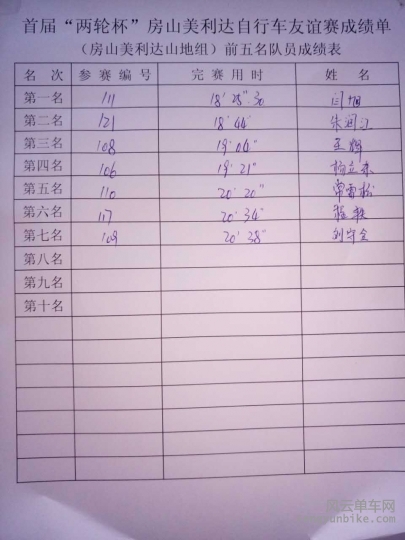 首届“两轮杯”房山美利达自行车友谊赛成绩单
（房山美利达山地组）前五名队员成绩表
名 次 参 赛 编 号 完 赛 用 时 姓 名
第一名 111 18′28″.30
第二名 121 18′44′
第三名 108 19′04″ 王辉
第四名 106 19′21″
第五名 110 20′20″
第六名 117 20′34″
第七名 109 20′38″ 刘守全
第八名
第九名
第十名
风云单车网